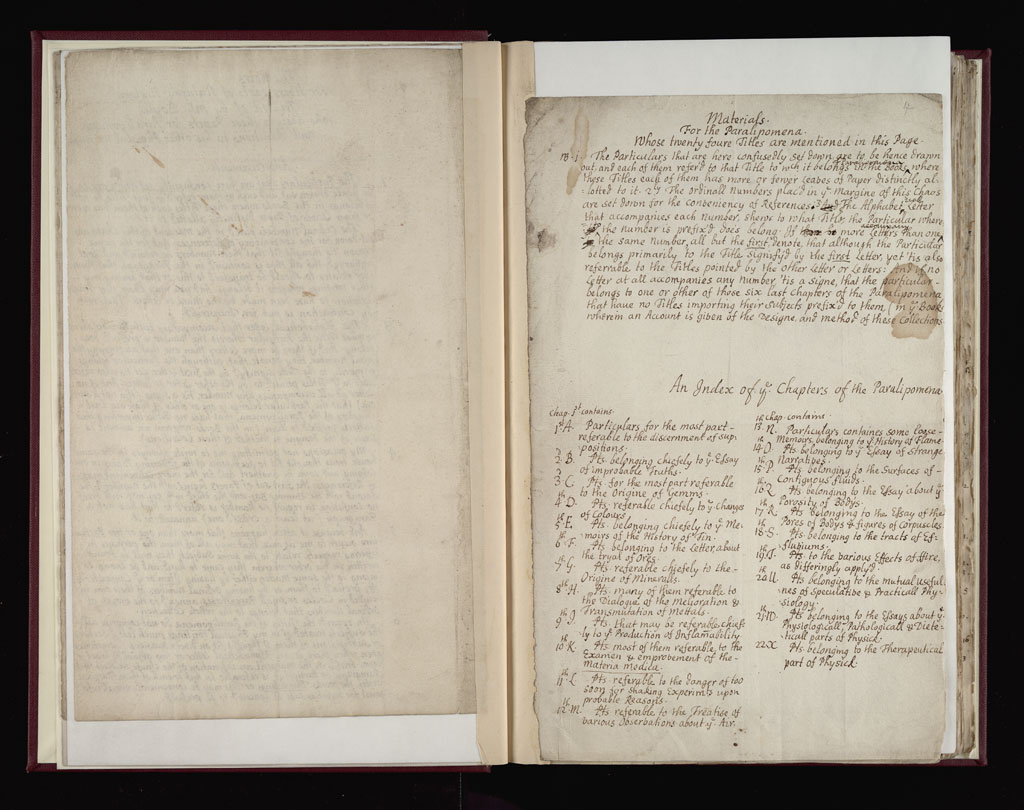 Materialls.
For the Paralipomena.
Whose twenty foure Titles are mentioned in this Page.
The Particulars that are here confusedly set down, are to be hence drawn
out, and each of them referd to that Title to wch it belongs in the Book, where
these Titles each of them has more or fewer leaves of Paper distinctly al-
lotted to it. 2ly The Ordinall Numbers plac'd in ye Margine of this Chaos
are set down for the conveniency of References. The Alphabet Letter
that accompanies each Number, shews to what Title, the Particular where
the number is prefix'd does belong. If more Letters than one
the same Number, all but the first denote, that although the Particular
belongs primarily to the Title signify'd by the first Letter, yet 'tis also
referrable to the Titles pointed by the other Letter or Letters: And if no
Letter at all accompanies any Number, 'tis a signe, that the particular
belongs to one or other of those six last Chapters of the Paralipomena
that have no Titles importing their Subjects prefix'd to them (in ye Book
wherein an Account is given of the Designe, and method of these Collections
An Index of ye Chapters of the Paralipomena
Chap. 1st contains.
1st A. Particulars for the most part
referable to the discernment of sup
positions.
2. B. Pts. belonging chiefely to ye Essay
of improbable Truths.
3 C. Pts. for the most part referable
to the Origine of Gemms.
4th D. Pts. referable chiefely to ye changes
of Colours.
5th E. Pts. belonging chiefely to ye Me-
moirs of the History of Tin.
6th F. Pts. belonging to the Letter about
the tryal of Ores
7th G. Pts. referable chiefely to the
Origine of Mineralls.
8th H. Pts. many of them referable to
the Dialogue of the Melioration &
Transmutation of Mettals.
9th J. Pts. that may be referable chief
ly to ye Production of Inflamability
10th K. Pts. most of them referable to the
Examen & emprovement of the
Materia Medica.
11th L. Pts. referable to the danger of too
soon for shaking Experimts upon
probable Reasons.
12th M. Pts. referable to the Treatise of
various Observations about ye Air.
Chap. contains
13th N. Particulars containes some loose
Memoirs belonging to ye History of Flame
14th O. Pts belonging to ye Essay of strange
Narratives.
15th P. Pts. belonging to the Surfaces of
Contiguous fluids.
16th Q. Pts belonging to the Essay about ye
Porosity of Bodys.
17th R. Pts belonging to the Essay of the
Pores of Bodys & figures of Corpuscles
18th S. Pts. belonging to the tracts of Ef-
fluviums.
19th T. Pts. to the various Effects of Fire,
as differingly apply'd.
20th U. Pts belonging to the mutual useful
nes of Speculative & Practicall Phy-
siology.
21th W. Pts belonging to the Essays about ye
Physiologicall, Pathologicall & Diete-
ticall parts of Physick.
22 X. Pts. belonging to the Therapeuticall
part of Physick